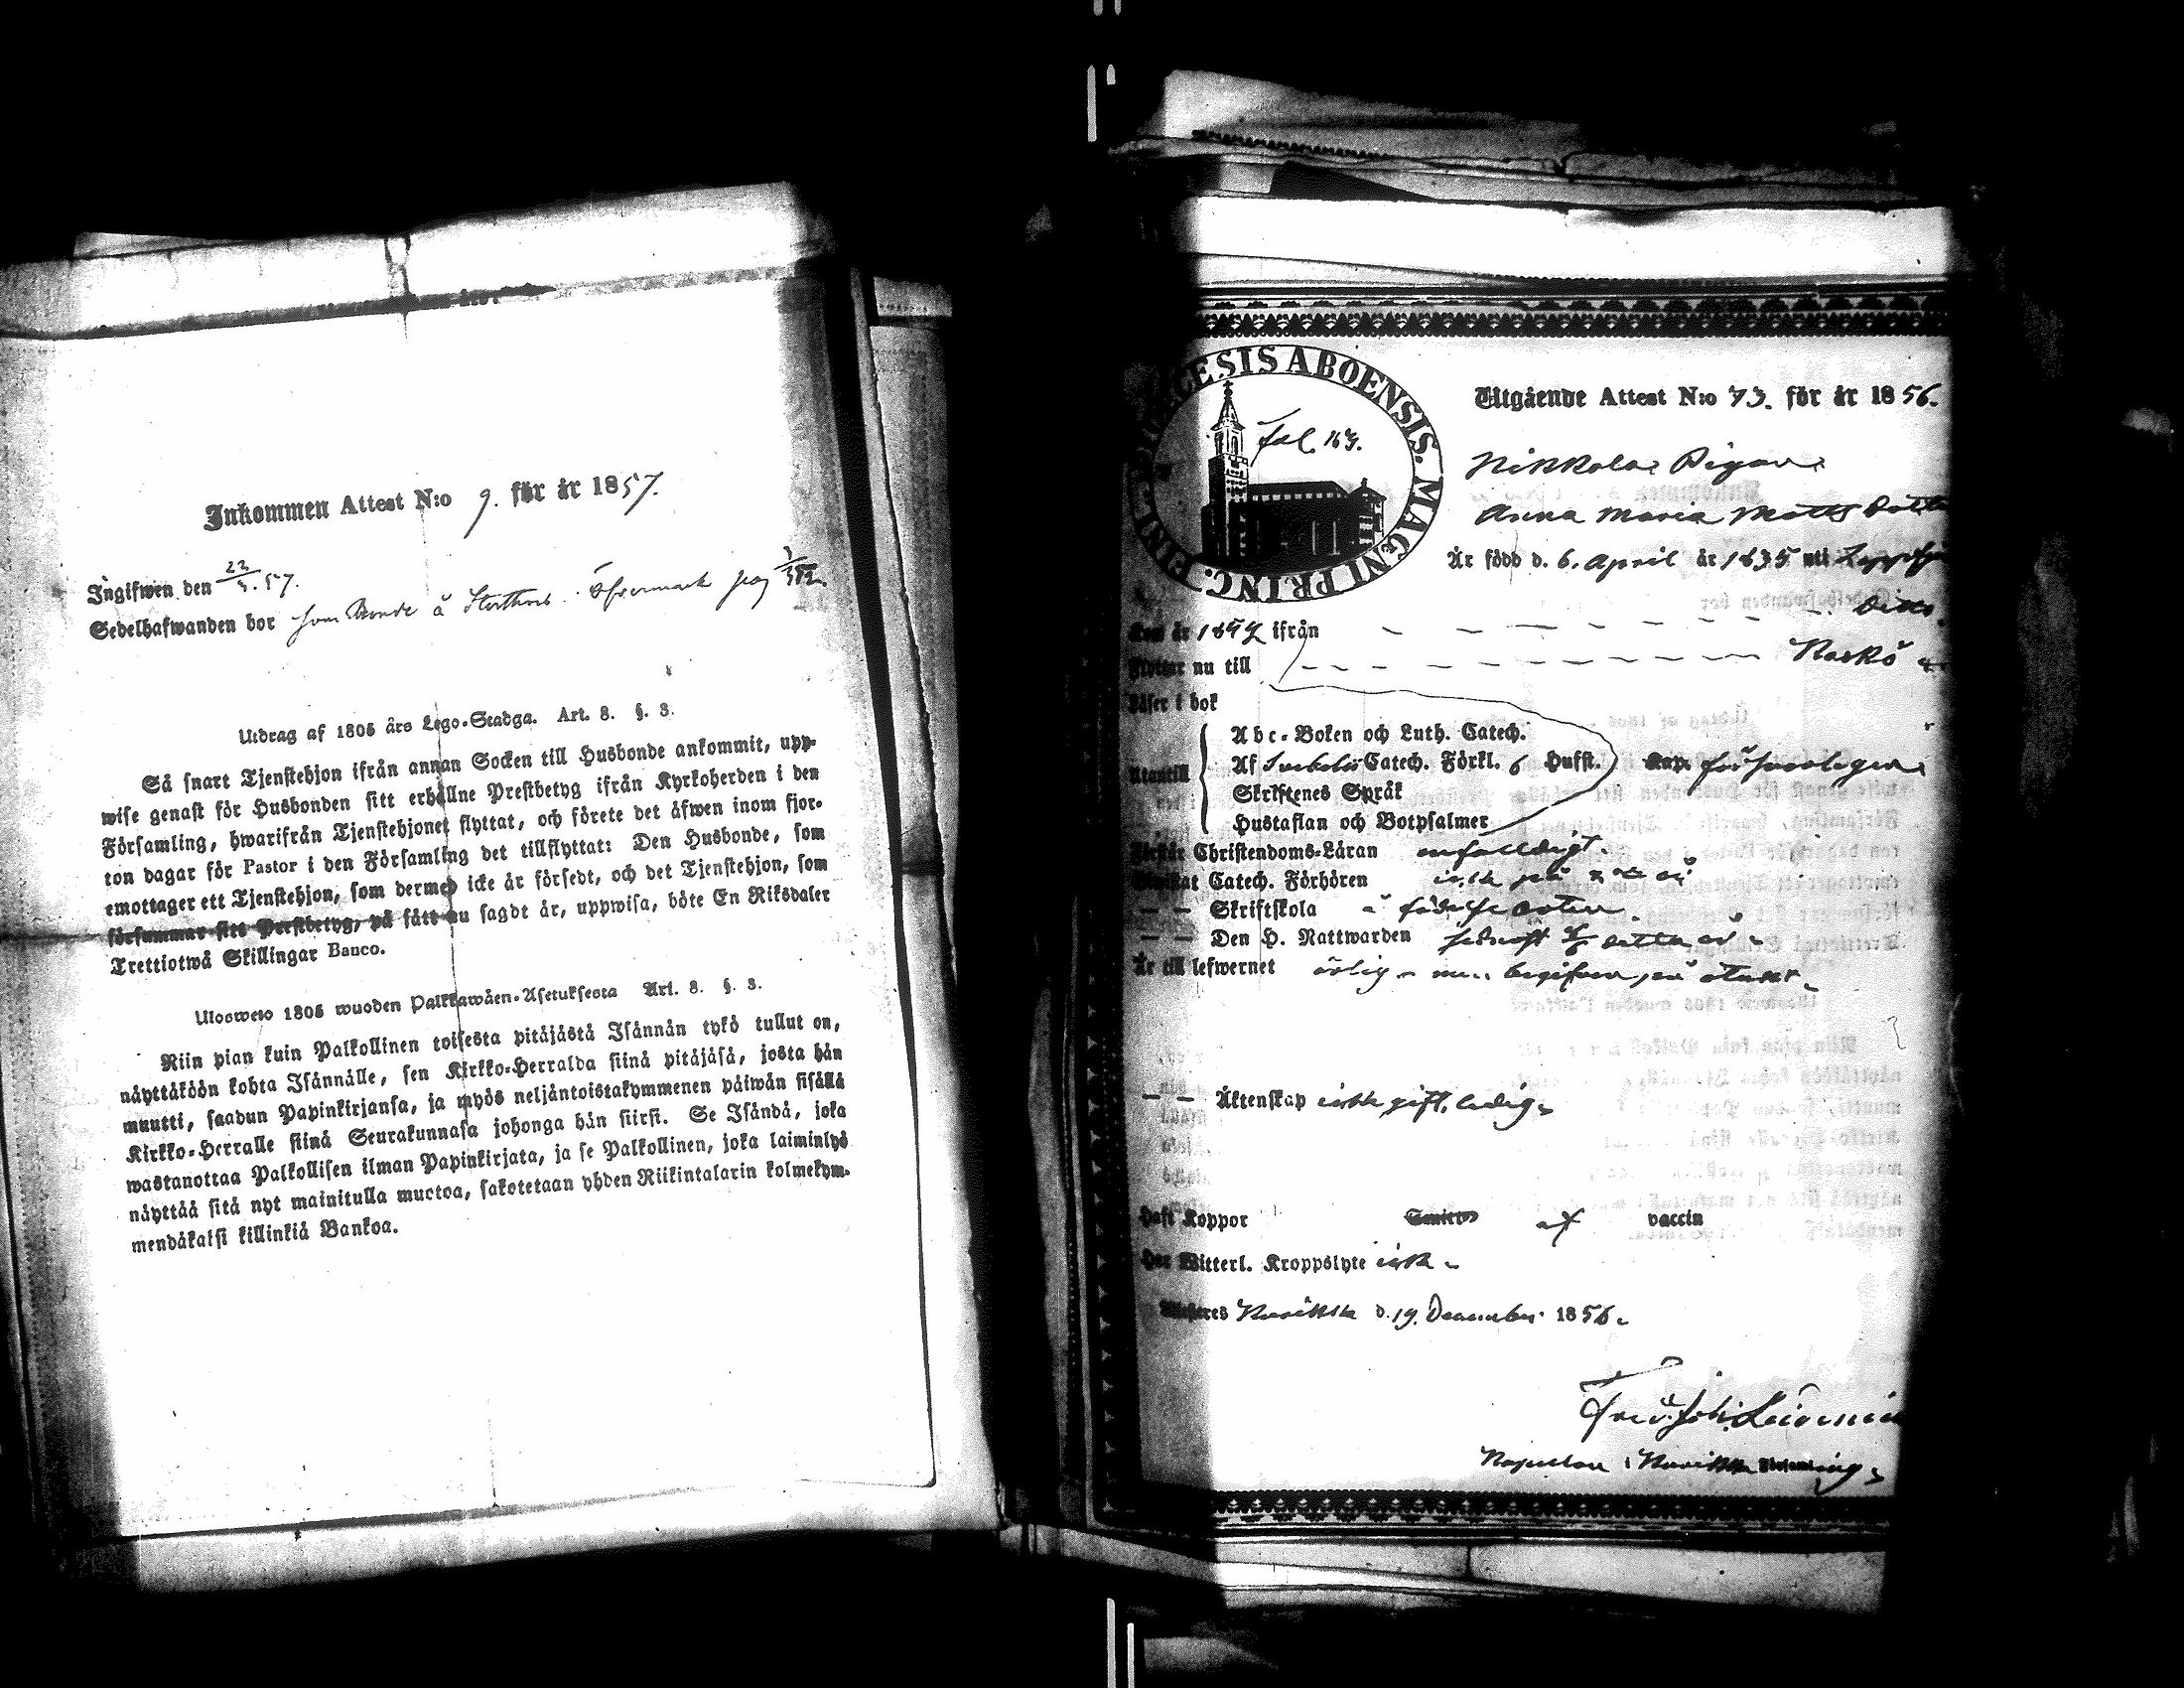 Inkommen Attest N:o 9. för år 1857.
Ingifwen den 23/3.57.
Sedelhafwanden bor som Bonde å
Utdrag af 1805 års Lego-Stadga. Art. 8. §. 3.
Så snart Tjenstehjon ifrån annan Socken till Husbonde ankommit, upp-
wise genast för Husbonden sitt erhållne Prestbetyg ifrån Kyrkoherden i den
Församling, hwarifrån Tjenstehjonet flyttat, och förete det äfwen inom fjor-
ton dagar för Pastor i den Församling det tillflyttat: Den Husbonde, som
emottager ett Tjenstehjon, som dermed icke är försedt, och det Tjenstehjon, som
försummar sitt Prestbetyg, på sätt nu sagdt är, uppwisa, böte En Riksdaler
Trettiotwå Skillingar Banco.
Ulosweto 1805 wuoden Palkkawäen-Asetuksesta Art. 8. §. 3.
Niin pian kuin Palkollinen toisesta pitäjästä Isännän tykö tullut on,
näyttäköön kohta Isännälle, sen Kirkko-Herralda siinä pitäjäsä, josta hän
muutti, saadun Papinkirjansa, ja myös neljäntoistakymmenen päiwän sisällä
Kirkko-Herralle siinä Seurakunnasa johonga hän siirsi. Se Isändä, joka
wastanottaa Palkollisen ilman Papinkirjata, ja se Palkollinen, joka laiminlyö
näyttää sitä nyt mainitulla muotoa, sakotetaan yhden Riikintalarin kolmekym-
mendäkaksi killinkiä Bankoa.
DIOECESIS ABOENSIS. MAGNI PRINC. FINL.
fol. 163.
Utgående Attest N:o 73. för år 1856.
Nikkola Pigan
Anna Maria Matts Dotter
Är född d. 6. April år 1835 uti
Kom år ifrån Ditto.
Flyttar nu till
Läser i bok
Utantill
Abc-Boken och Luth. Catech.
Af Swebelii Catech. Förkl. 6 Hufst. Kap. försvarligen
Skriftenes Språk
Hustaflan och Botpsalmer
Förstår Christendoms-Läran enfaldigt.
Catech. Förhören
— — Skriftskola å födelseorten.
— — Den H. Nattwarden detta år
Är till lefwernet ärlig men begifven på
— — Äktenskap icke gift, ledig
Haft Koppor af vaccin
Har Witterl. Kroppslyte icke
d. 19. December 1856.
i Församling